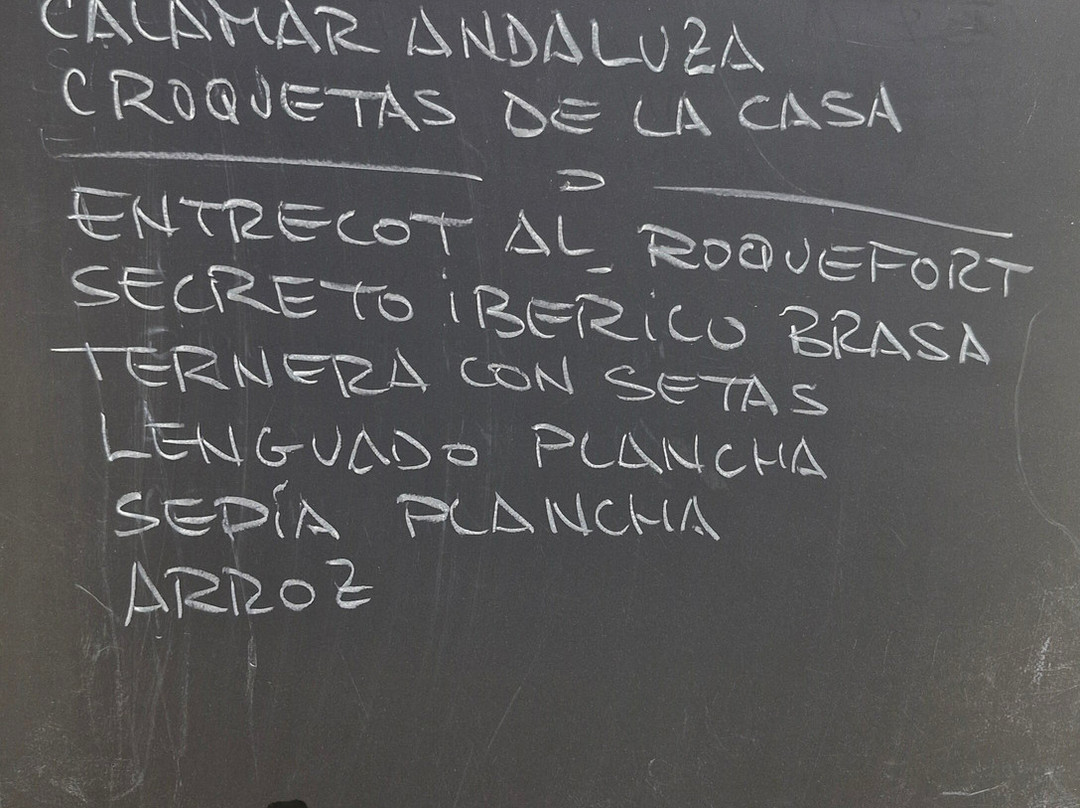 CALAMAR ANDALUZA
CROQUETAS DE LA CASA
ENTRECOT AL ROQUEFORT
SECRETO IBERICO BRASA
TERNERA CON SETAS
LENGUADO PLANCHA
SEPÍA PLANCHA
ARROZ